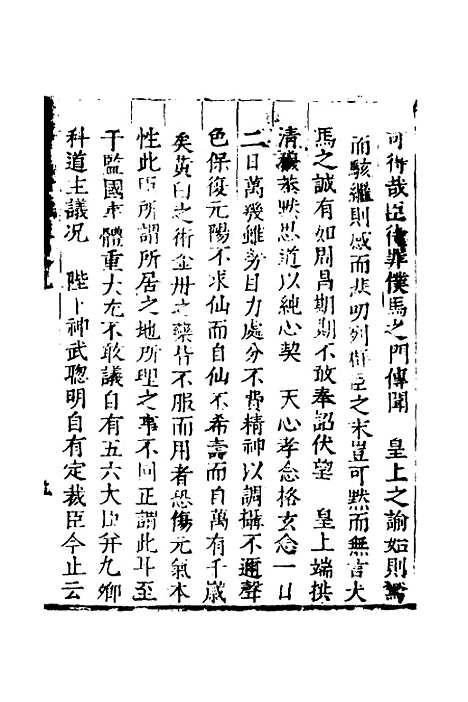 可得哉臣待罪僕馬之門傳聞　皇上之諭始則驚
而駭繼則感而悲叨列衛臣之末豈可默而無言犬
馬之誠有如周昌期期不敢奉詔伏望　皇上端拱
清穆恭默思道以純心契　天心孝念格玄念一日
二日萬幾雖勞目力處分不費精神以調攝不邇聲
色保復元陽不求仙而自仙不希壽而自萬有千歲
矣黃白之術金丹之藥皆不服而用者恐傷元氣本
性此臣所謂所居之地所理之事不同正謂此耳至
于監國事體重大尤不敢議自有五六大臣并九卿
科道主議況　陛下神武聰明自有定裁臣今止云
九